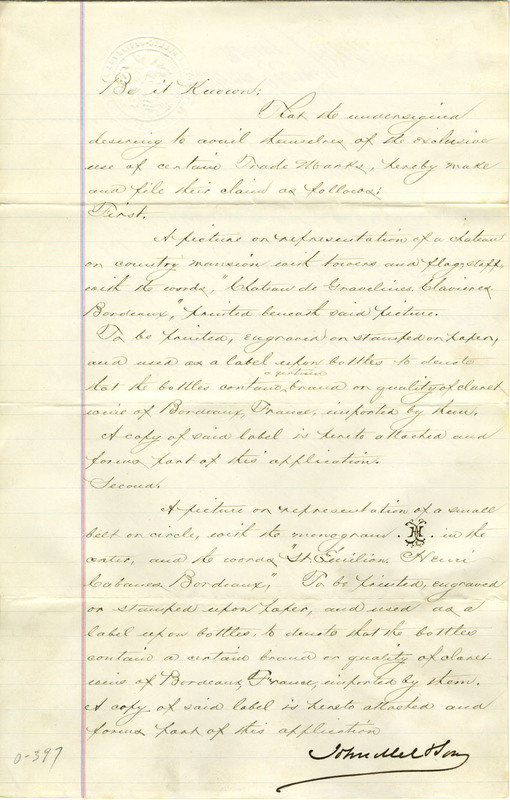 Be it Known:
That the undersigned
desiring to avail themselves of the exclusive
use of certain Trade Marks, hereby make
and file their claim as follows:
First.
A picture or representation of a chateau
or country mansion with towers and flag-staff,
with the words, "Chateau de Gravelines,
Bordeaux," printed beneath said picture.
To be printed, engraved or stamped on paper,
and used as a label upon bottles to denote
that the bottles contain a certain brand or quality of claret
wine of Bordeaux, France, imported by them.
A copy of said label is hereto attached and
forms part of this application.
Second.
A picture or representation of a small
belt or circle, with the monogram . . in the
center, and the words "St Émilion, Henri
Cabanes Bordeaux," To be printed, engraved
or stamped upon paper, and used as a
label upon bottles, to denote that the bottles
contain a certain brand or quality of claret
wine of Bordeaux, France, imported by them.
A copy of said label is hereto attached and
forms part of this application
John Mel & Son
0-397